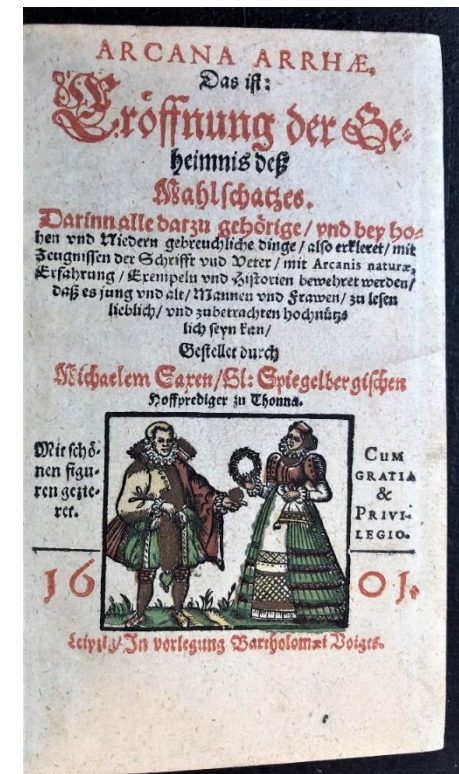 ARCANA ARRHÆ,
Das ist:
Eröffnung der Ge-
heimnis deß
Mahlschatzes.
Darinn alle darzu gehörige / vnd bey ho-
hen vnd Niedern gebreuchliche dinge / also erkleret / mit
Zeugnissen der Schrifft vnd Veter / mit Arcanis naturæ,
Erfahrung / Exempeln vnd Historien bewehret werden /
daß es jung vnd alt / Mannen vnd Frawen / zu lesen
lieblich / vnd zubetrachten hochnütz-
lich seyn kan /
Gestellet durch
Michaelem Saxen / Gl: Spiegelbergischen
Hoffprediger zu Thonna.
Mit schö-
nen figu-
ren gezie-
ret.
CUM
GRATIA
&
PRIVI-
LEGIO.
1601.
Leipzig / In vorlegung Bartholomæi Voigts.